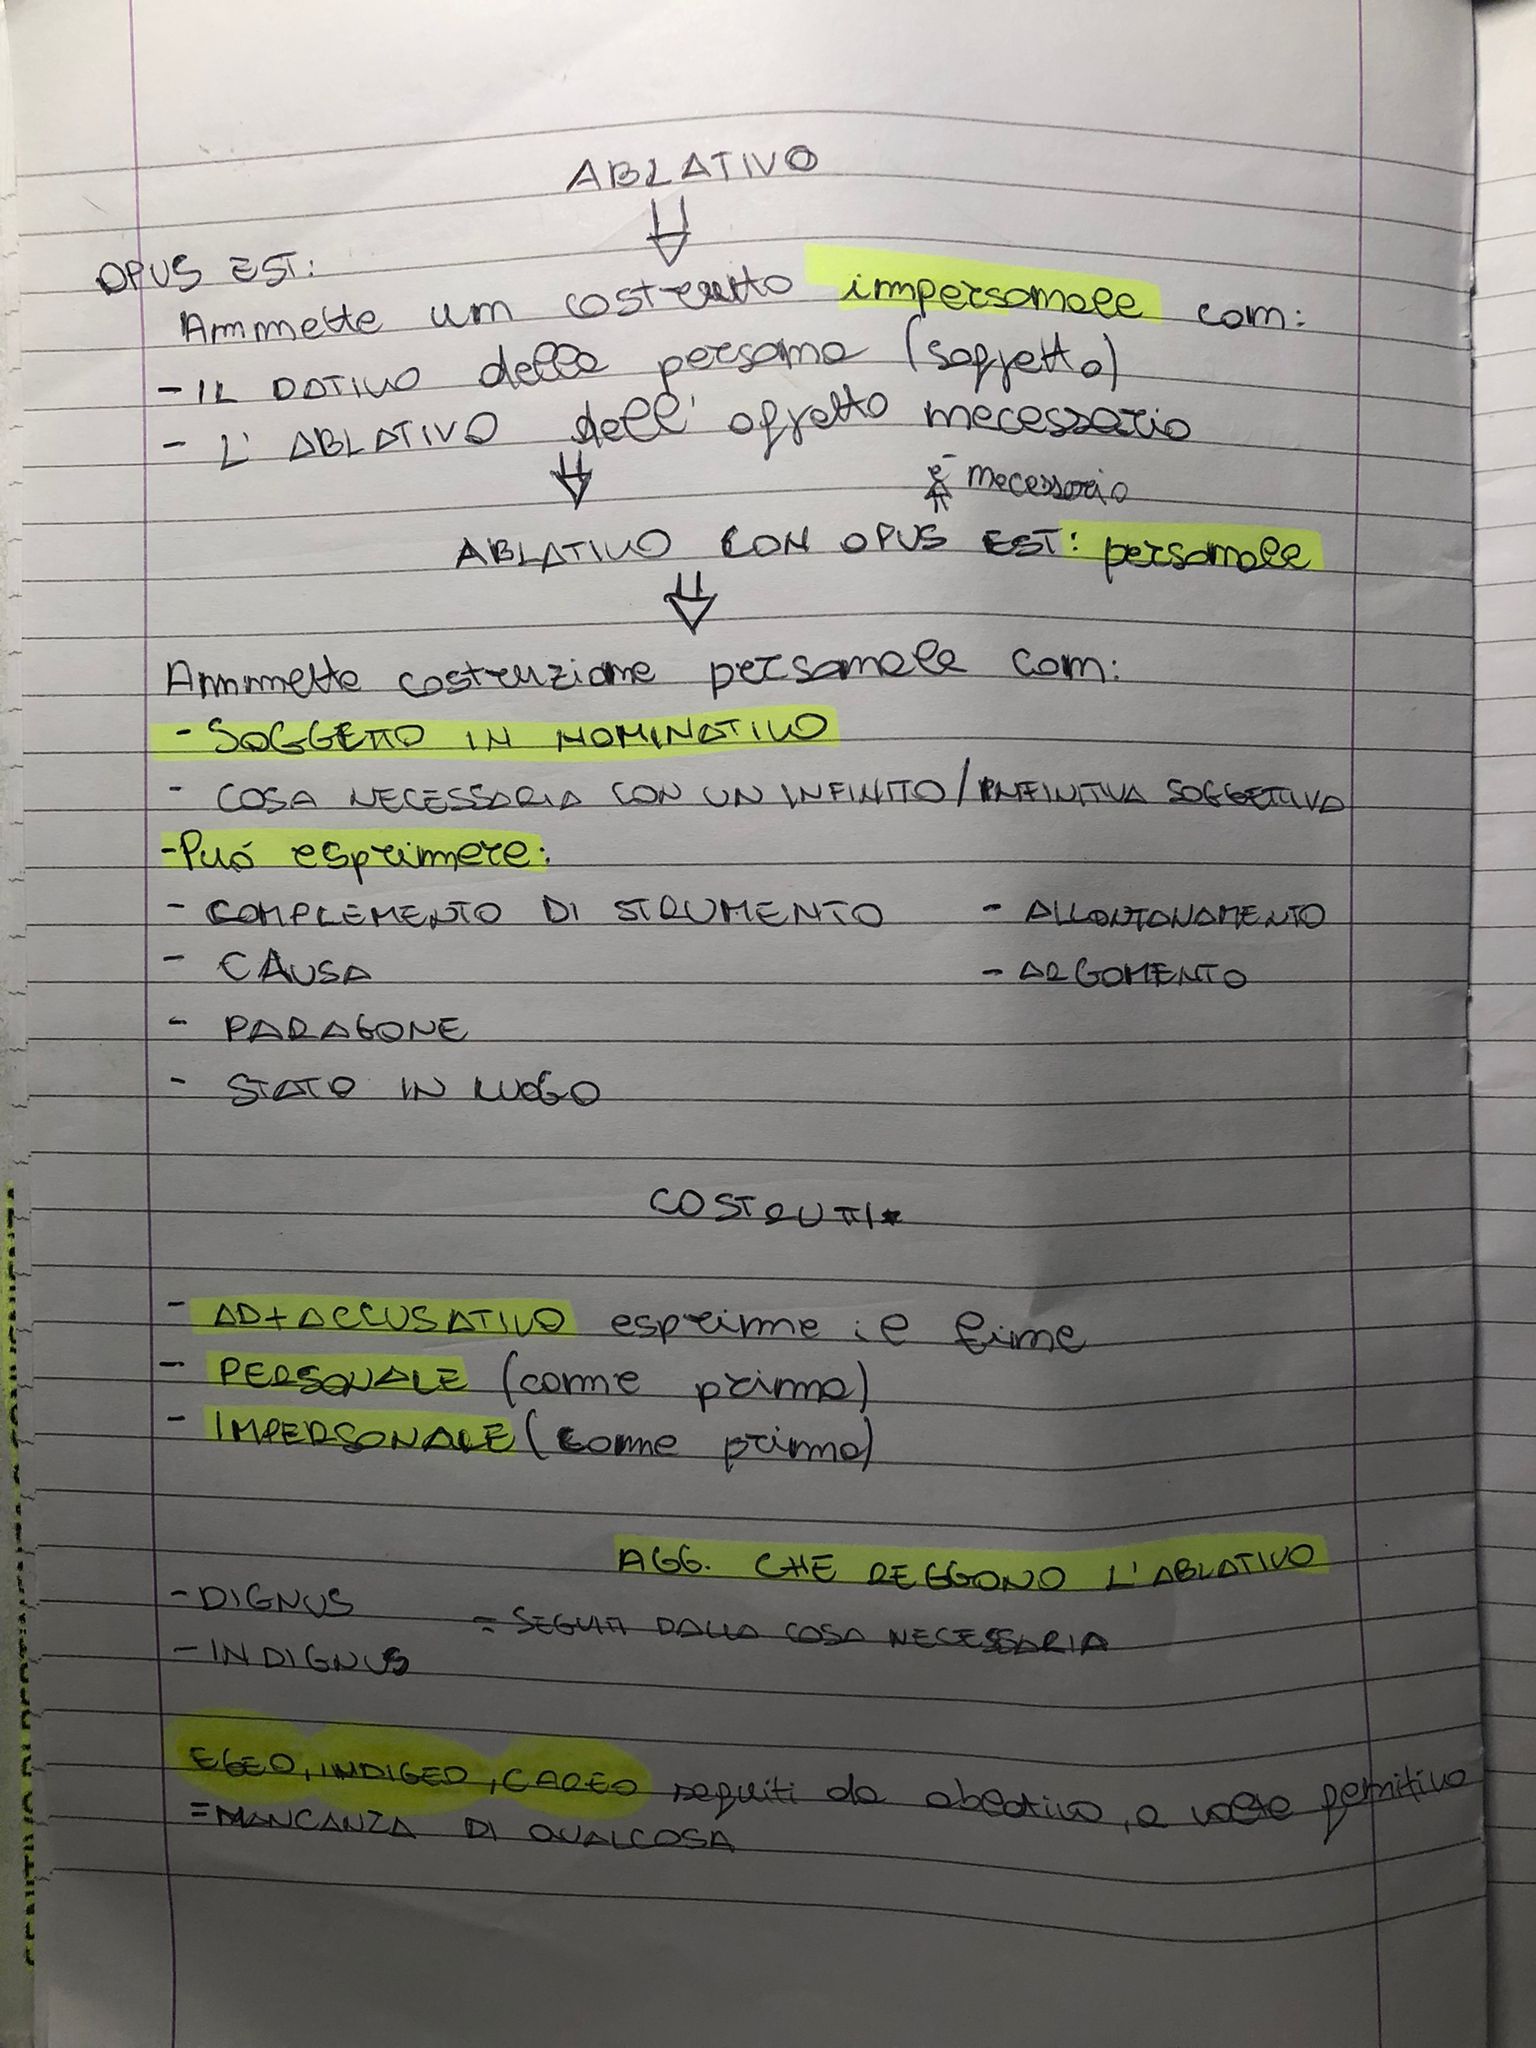 ABLATIVO
OPUS EST:
Ammette un costrutto impersonale con:
- IL DATIVO della persona (soggetto)
- L'ABLATIVO dell'oggetto necessario
è necessario
ABLATIVO CON OPUS EST: personale
Ammette costruzione personale con:
- SOGGETTO IN NOMINATIVO
- COSA NECESSARIA CON UN INFINITO/INFINITIVA SOGGETTIVA
- Può esprimere:
- COMPLEMENTO DI STRUMENTO - ALLONTANAMENTO
- CAUSA - ARGOMENTO
- PARAGONE
- STATO IN LUOGO
COSTRUTTI*
- AD+ACCUSATIVO esprime il fine
- PERSONALE (come prima)
- IMPERSONALE (come prima)
AGG. CHE REGGONO L'ABLATIVO
- DIGNUS = SEGUITI DALLA COSA NECESSARIA
- INDIGNUS
EGEO, INDIGEO, CAREO seguiti da ablativo, a volte genitivo
= MANCANZA DI QUALCOSA